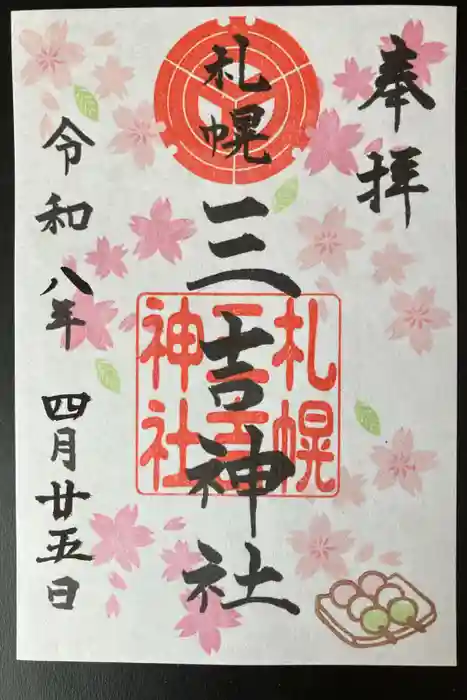 奉拝
札幌
三吉神社
札幌
三吉
神社
令和八年 四月廿五日